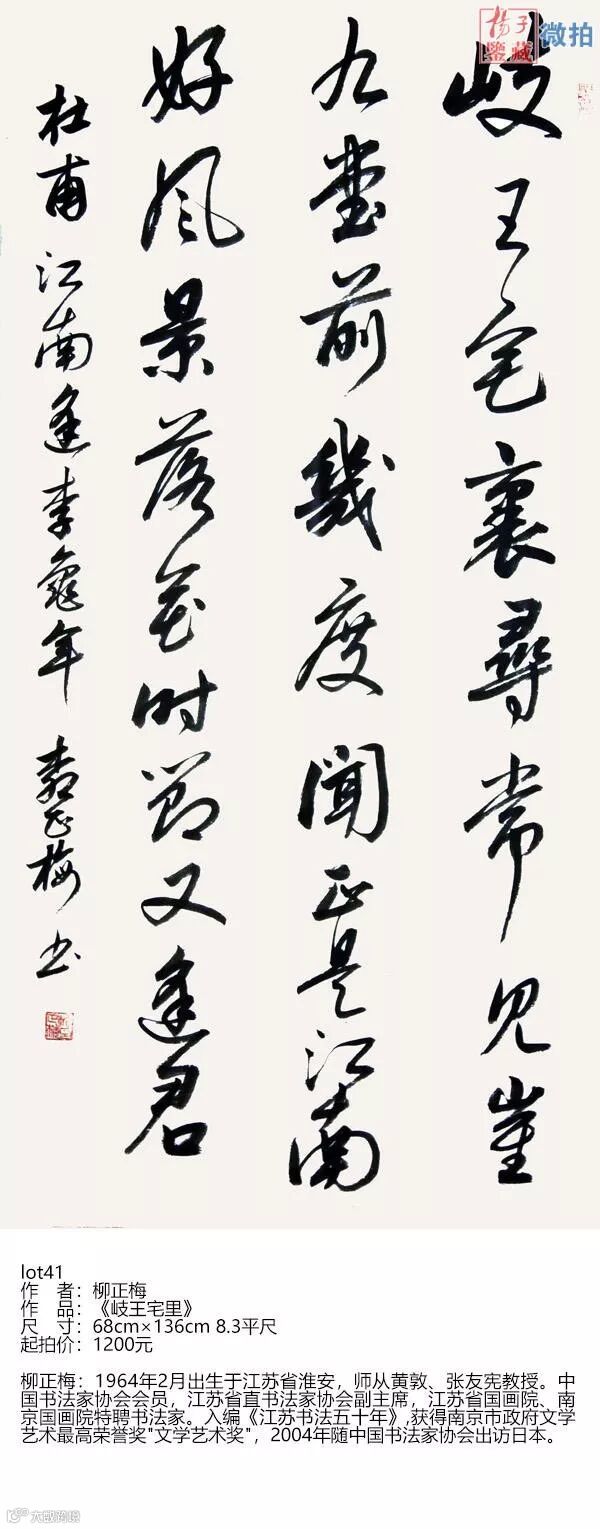 揚子
鑒藏
微拍
岐王宅裏尋常見崔
九堂前幾度聞正是江南
好风景落花时節又逢君
杜甫江南逢李龜年 柳正梅书
lot41
作 者：柳正梅
作 品：《岐王宅里》
尺 寸：68cm×136cm 8.3平尺
起拍价：1200元
柳正梅：1964年2月出生于江苏省淮安，师从黄敦、张友宪教授。中
国书法家协会会员，江苏省直书法家协会副主席，江苏省国画院、南
京国画院特聘书法家。入编《江苏书法五十年》,获得南京市政府文学
艺术最高荣誉奖"文学艺术奖"，2004年随中国书法家协会出访日本。
大威跨境